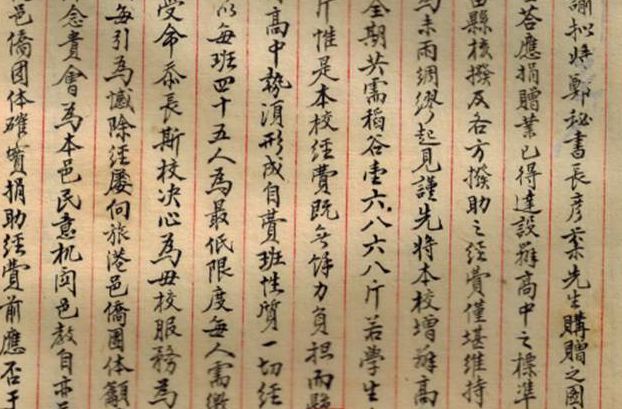 謝拟将鄭祕書長彦棻先生購贈之圖
荅應捐贈業已得達設辦高中之標準
縣核撥及各方撥助之經費僅堪維持
未雨綢繆起見謹先将本校增辦高
全期共需稻谷壹六八六八斤若學生
斤惟是本校經費既無餘力負担而
高中勢須形成自費班性質一切經
以每班四十五人為最低限度每人需繳
受命忝長斯校决心為母校服務為
每引為憾除經屡向旅港邑僑團体籲
念貴會為本邑民意机関邑教自亦
邑僑團体確實捐助經費前應否于